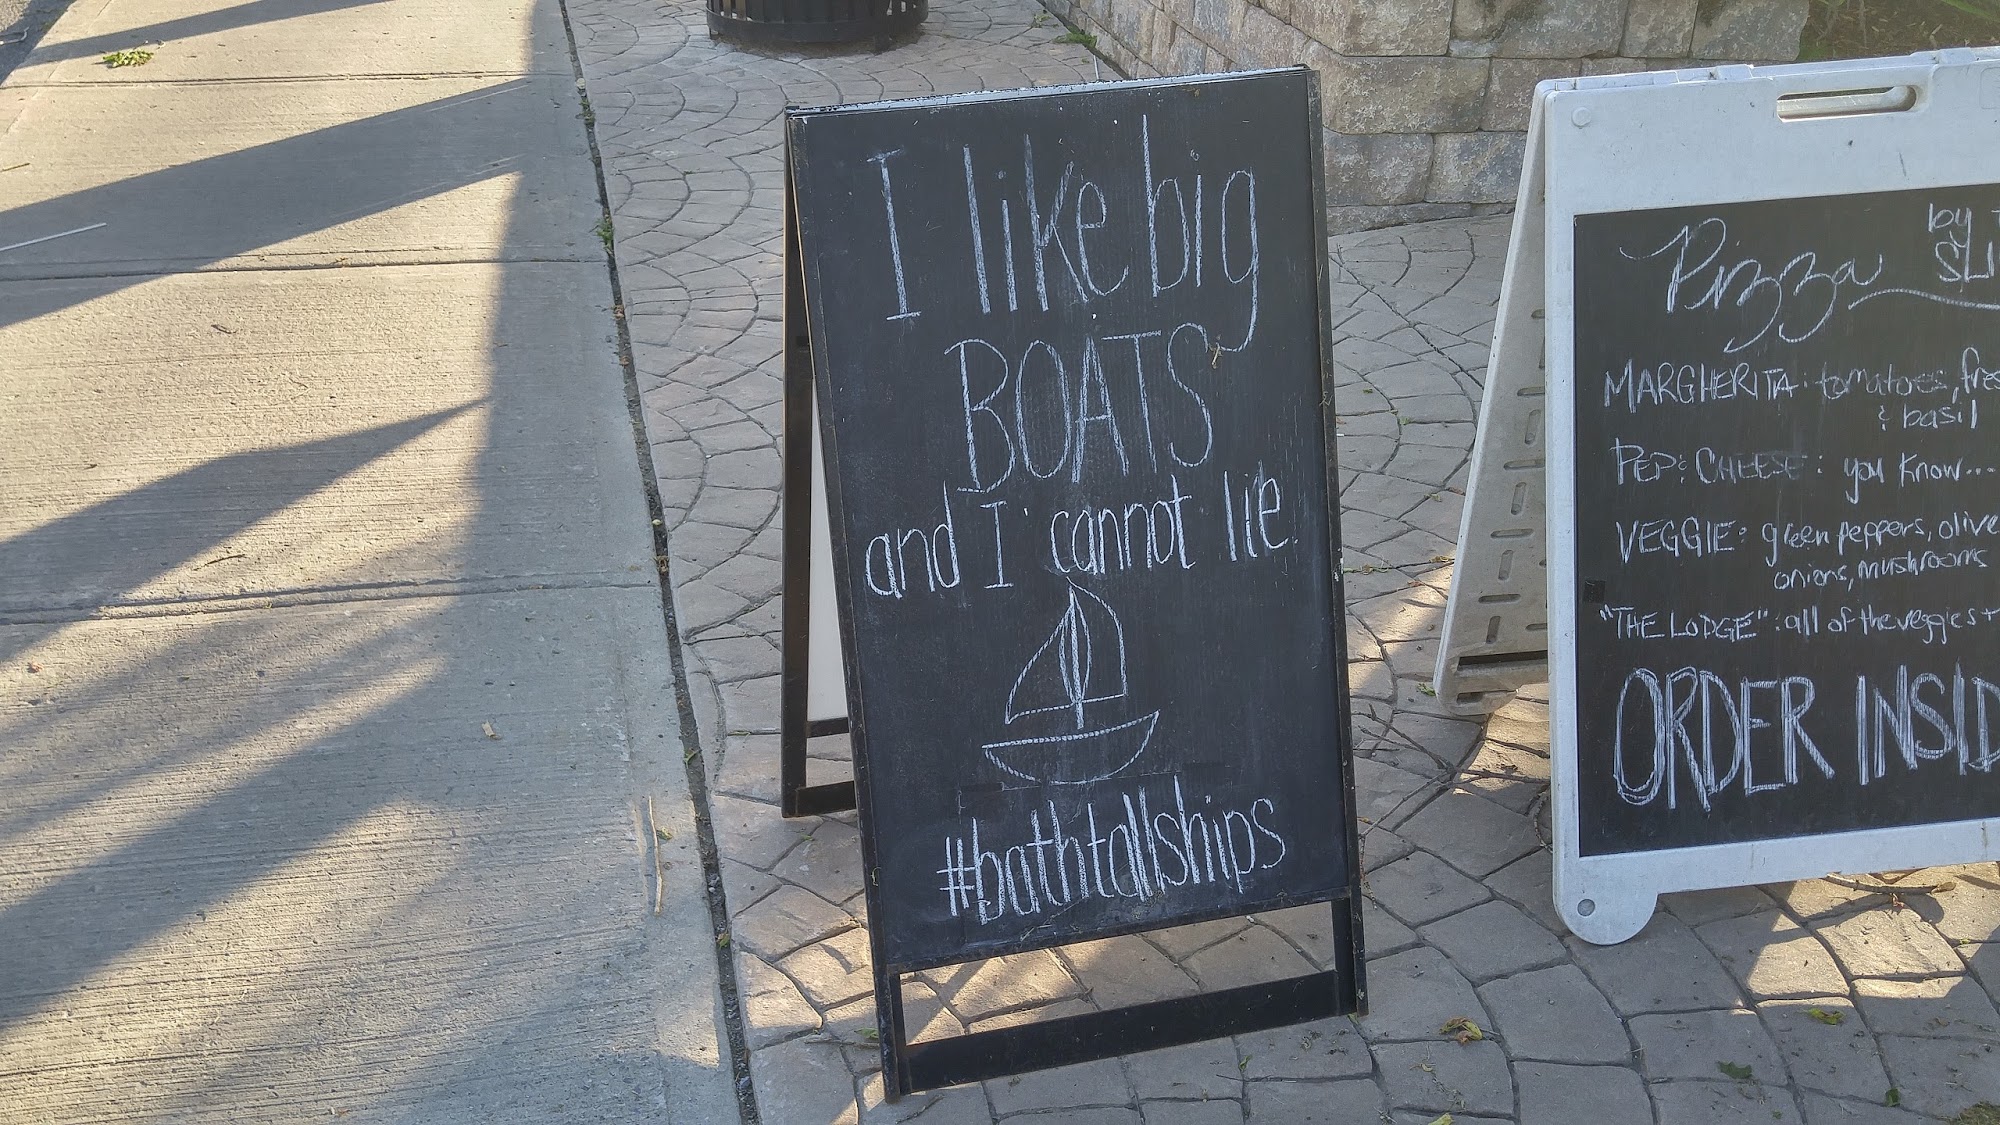 I like big
BOATS
and I cannot lie.
#bathtallships
Pizza by
SLI
MARGHERITA: tomatoes, fres
& basil
PEP & CHEESE: you know...
VEGGIE: green peppers, olive
onions, mushrooms
"THE LODGE": all of the veggies +
ORDER INSID